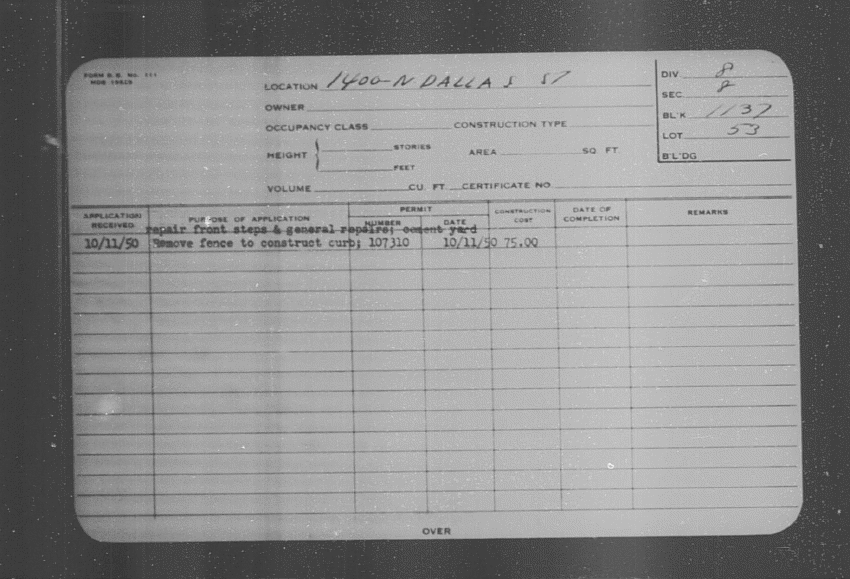 FORM B. B. No. 111
LOCATION 1400-N DALLAS ST
DIV. 8
SEC. 8
OWNER
BL'K 1137
OCCUPANCY CLASS CONSTRUCTION TYPE
LOT 53
HEIGHT { STORIES AREA SQ. FT.
FEET
B'L'DG
VOLUME CU. FT. CERTIFICATE NO
APPLICATION RECEIVED PURPOSE OF APPLICATION PERMIT NUMBER DATE CONSTRUCTION COST DATE OF COMPLETION REMARKS
repair front steps & general repairs; cement yard
10/11/50 Remove fence to construct curb; 107310 10/11/50 75.00
OVER